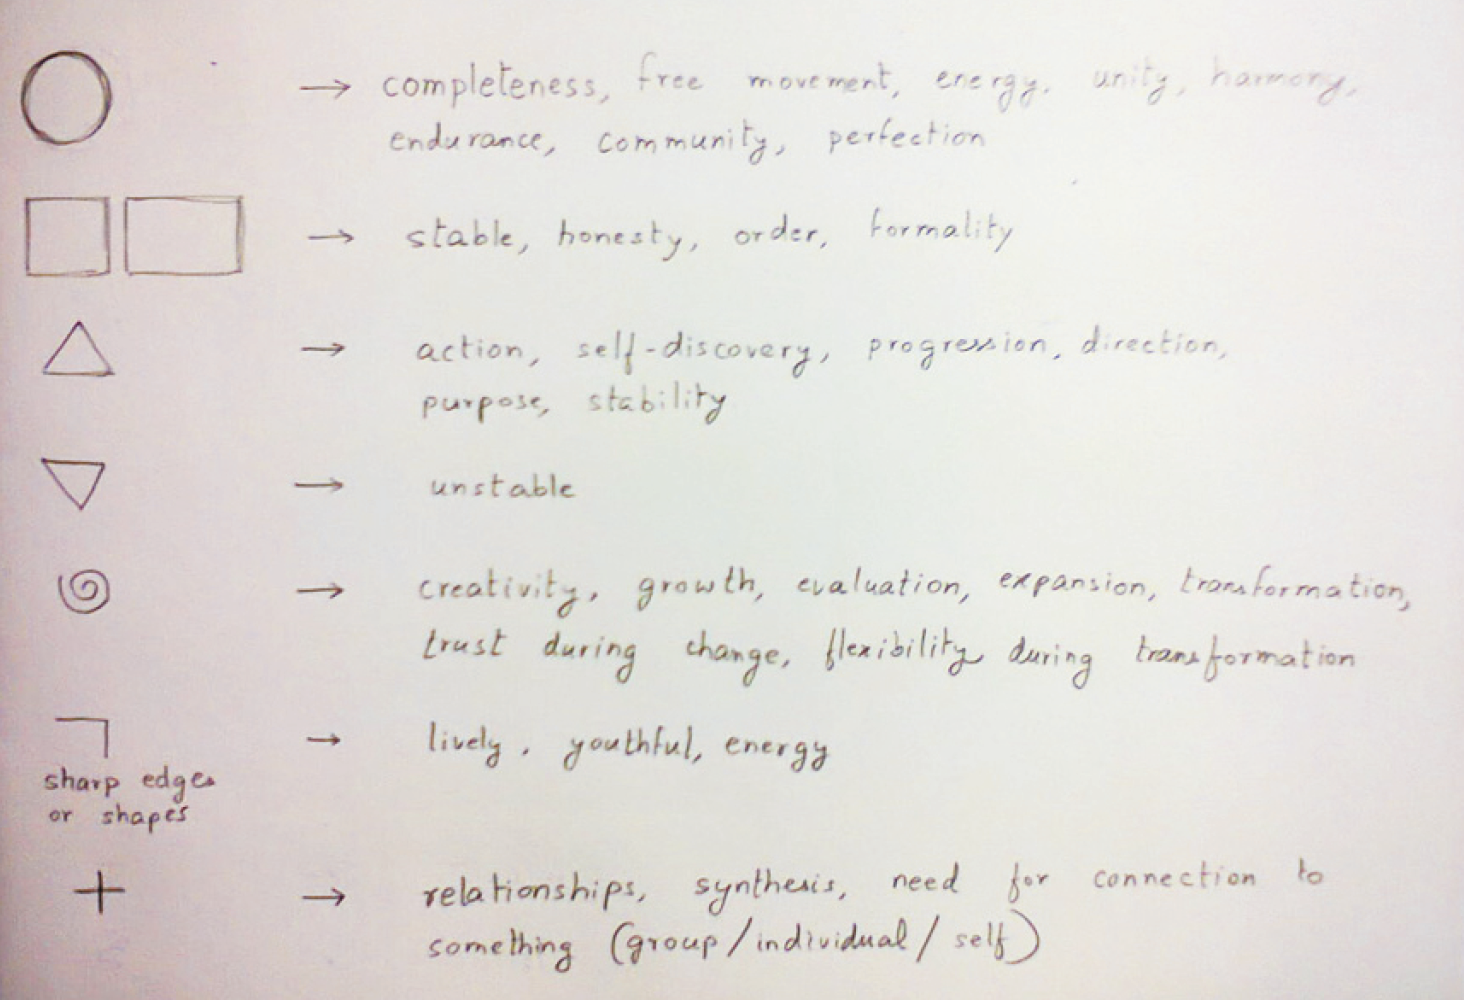 → completeness, free movement, energy, unity, harmony,
endurance, community, perfection
→ stable, honesty, order, formality
→ action, self-discovery, progression, direction,
purpose, stability
→ unstable
→ creativity, growth, evaluation, expansion, transformation,
trust during change, flexibility during transformation
→ lively, youthful, energy
sharp edges
or shapes
+ → relationships, synthesis, need for connection to
something (group/individual/self)